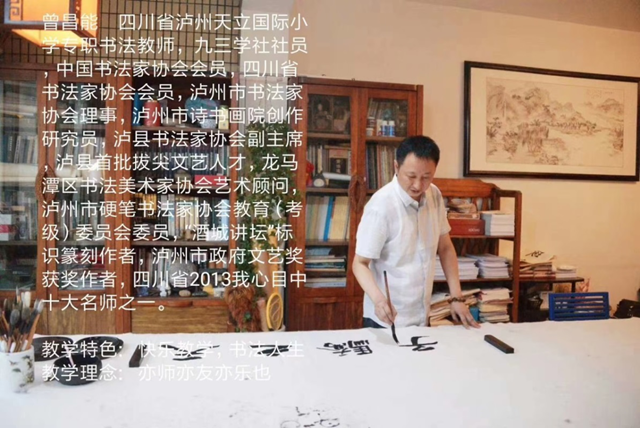 曾昌能　四川省泸州天立国际小
学专职书法教师，九三学社社员
，中国书法家协会会员，四川省
书法家协会会员，泸州市书法家
协会理事，泸州市诗书画院创作
研究员，泸县书法家协会副主席
，泸县首批拔尖文艺人才，龙马
潭区书法美术家协会艺术顾问，
泸州市硬笔书法家协会教育（考
级）委员会委员，“酒城讲坛”标
识篆刻作者，泸州市政府文艺奖
获奖作者，四川省2013我心目中
十大名师之一。
教学特色：快乐教学，书法人生
教学理念：亦师亦友亦乐也